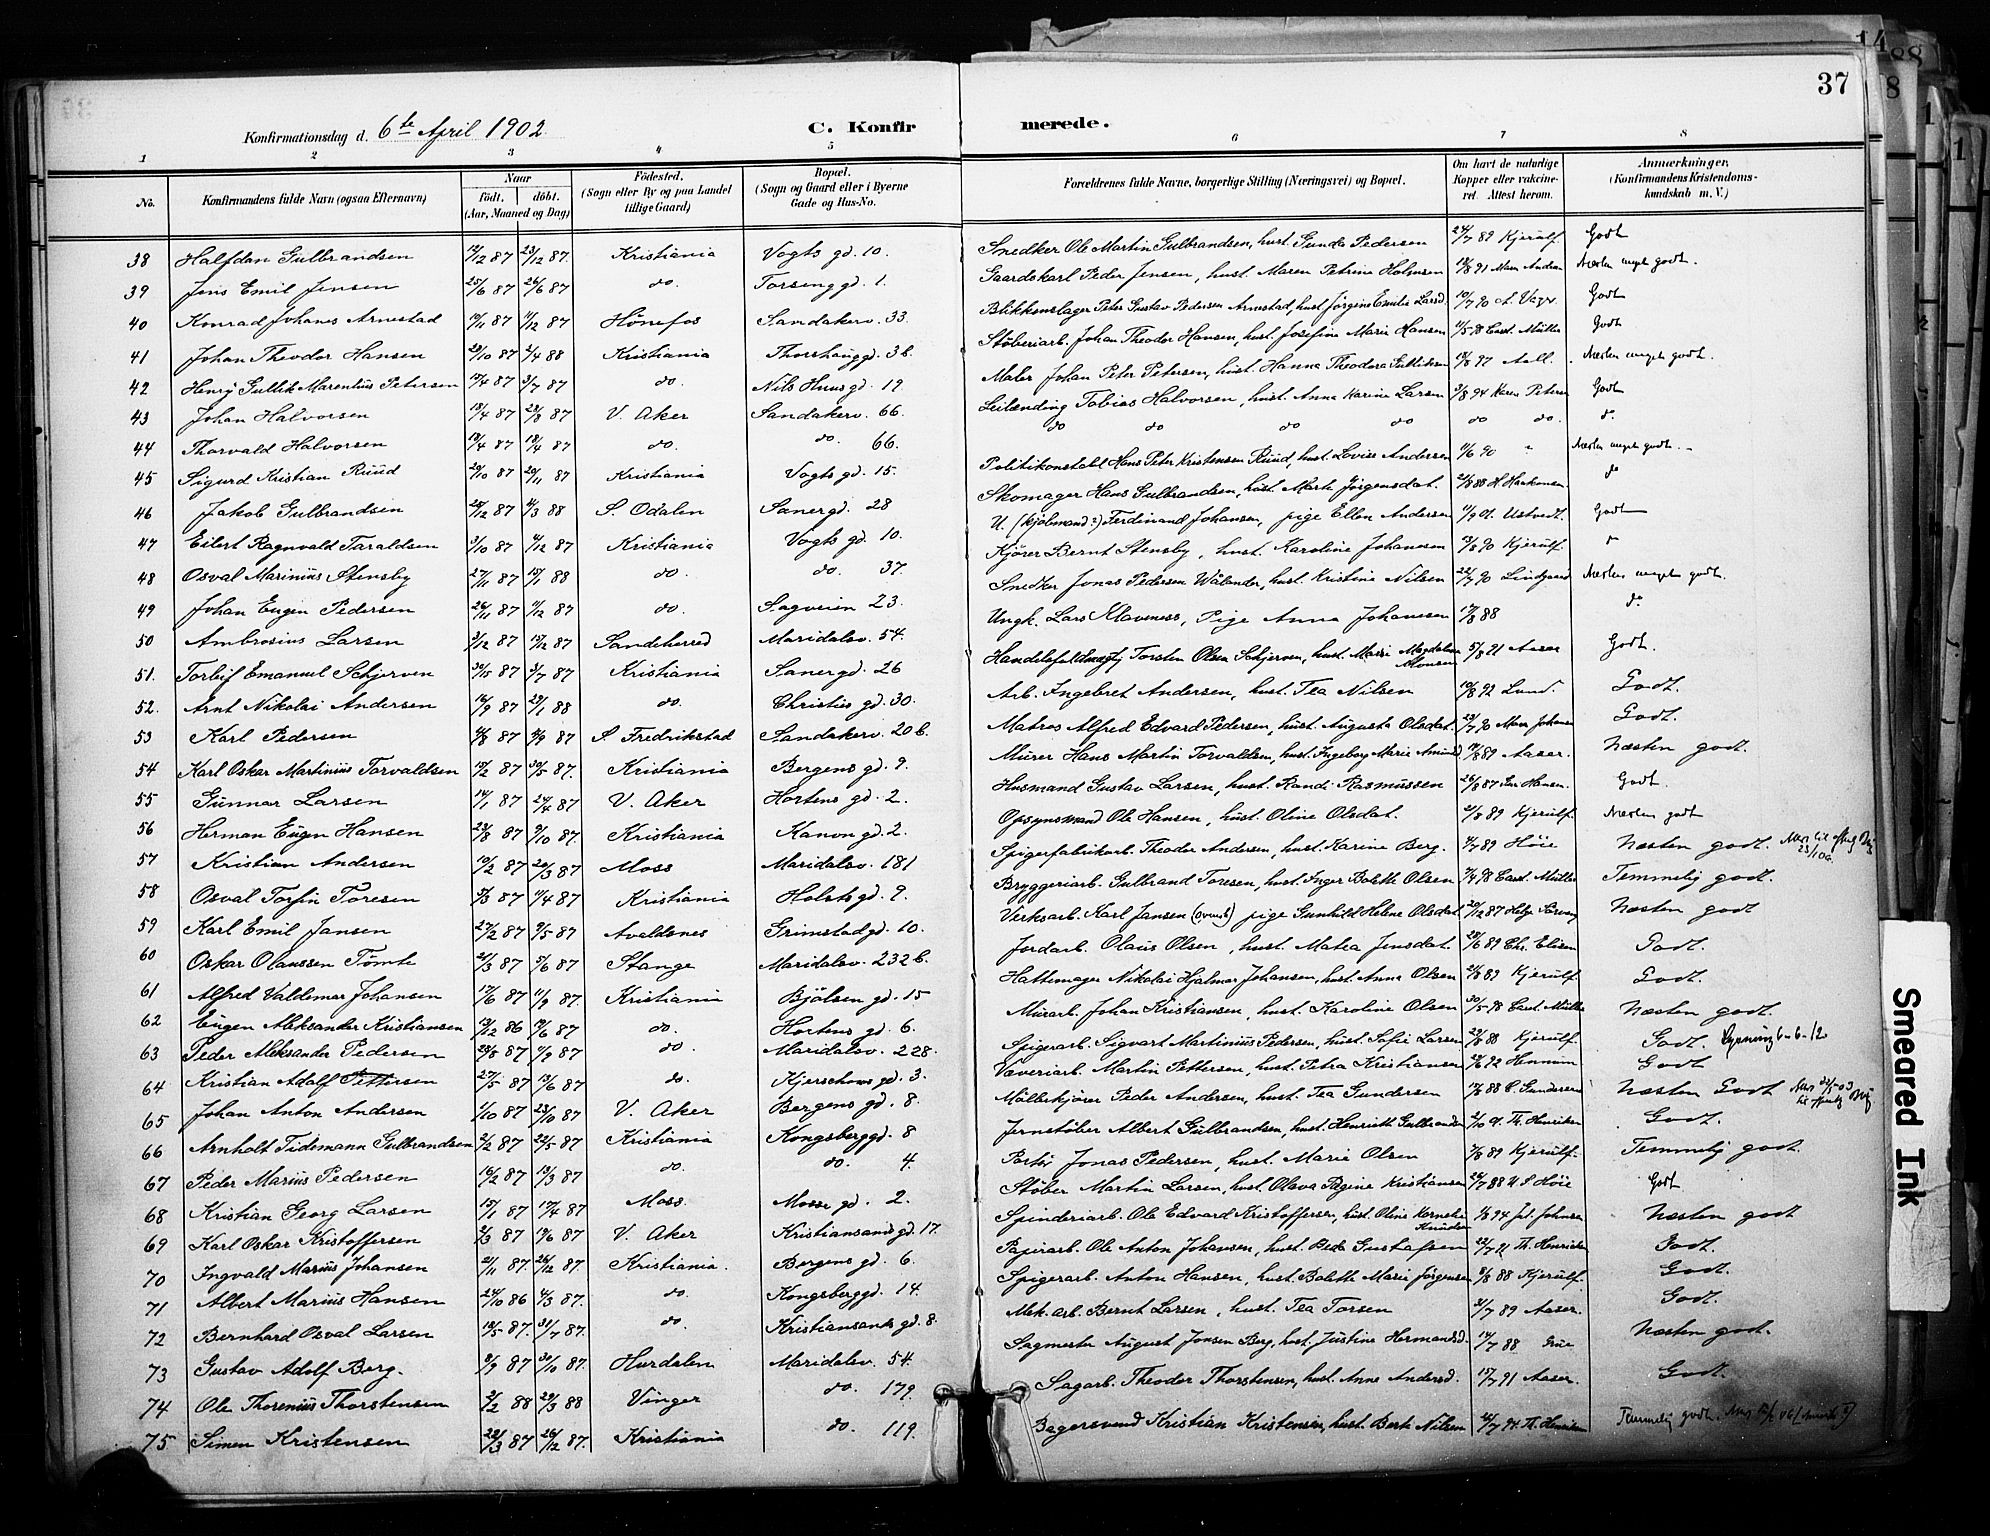 14
88
8
37
Konfirmationsdag d. 6te April 1902
C. Konfir merede.
1 2 3 4 5 6 7 8
No. Konfirmandens fulde Navn (ogsaa Efternavn) Naar født. døbt. (Aar, Maaned og Dag) Fødested. (Sogn eller By og paa Landet tillige Gaard) Bopæl. (Sogn og Gaard eller i Byerne Gade og Hus-No. Forældrenes fulde Navne, borgerlige Stilling (Næringsvei) og Bopæl. Om havt de naturlige Kopper eller vakcineret. Attest herom. Anmærkninger. (Konfirmandens Kristendomskundskab m. V.)
38 Halfdan Gulbrandsen 12/12 87 23/12 87. Kristiania Vogts gd. 10. Snedker Ole Martin Gulbrandsen, hust. Gunda Pedersen 24/7 89 Kjerulf. Godt
39 Jens Emil Jensen 25/6 87 26/6 87 do. Torsenggd. 1. Gaardskarl Peder Jensen, hust. Maren Petrine Holgersen 18/8 91 Næsten meget godt.
40 Konrad Johanes Arnestad 19/11 87 11/12 87 Hönefos Sandakerv. 33. Blikkenslager Peter Gustav Pedersen Arnestad, hust. Jørgine Emilie Larsd. 10/7 90 Godt
41 Johan Theodor Hansen 23/10 87 2/4 88 Kristiania Thorshauggd. 3b. Støberiarb. Johan Theodor Hansen, hust. Josefine Marie Hansen 11/5 98 Carst. Müller Godt
42 Henry Gullik Marentius Petersen 17/4 87 3/7 87 do. Nils Huusgd. 19. Maler Johan Peter Petersen, hust. Hanna Theodora Gulliksen 18/8 97 Aall. Næsten meget godt.
43 Johan Halvorsen 18/4 87 28/8 87 V. Aker Sandakerv. 66. Leilænding Tobias Halvorsen, hust. Anna Karine Larsen 3/8 94 Karen Petersen Godt
44 Thorvald Halvorsen 18/4 87 18/4 87 do. do. 66. do do do do do do do. do
45 Sigurd Kristian Ruud 29/10 87 20/11 87 Kristiania Vogts gd. 15. Politikonstabl Hans Peter Kristensen Ruud, hust. Lovise Andersen 11/6 90 " Næsten meget godt.
46 Jakob Gulbrandsen 28/12 87 4/3 88 S. Odalen Sanergd. 28 Skomager Hans Gulbrandsen, hust. Marte Jørgensdat. 21/8 88 H. Haakonsen do
47 Eilert Ragnvald Taraldsen 3/10 87 4/12 87 Kristiania Vogts gd. 10. U. (Kjolmand?) Ferdinand Johansen, pige Ellen Andersen 11/9 01. Ustvedt. Godt
48 Osval Marinius Stensby 27/11 87 15/1 88 do. do. 37. Kjører Bernt Stensby, hust. Karoline Johansen 13/8 90 Kjerulf. do
49 Johan Eugen Pedersen 26/11 87 11/12 87 do. Sagveien 23. Snedker Jonas Pedersen Wålander, hust. Kristine Nilsen 22/7 90 Lindgaard Næsten meget godt.
50 Ambrosius Larsen 3/12 87 18/12 87 Sandeherred Maridalsv. 54. Ungk. Lars Klaveness, Pige Anna Johansen 17/8 88 do
51. Torleif Emanuel Schjerven 30/5 87 3/7 87 Kristiania Sanergd. 26 Handelsfuldmægtig Torsten Olsen Schjerven, hust. Marie Magdalene Monsen 5/8 91 Aaser Godt.
52. Arnt Nikolai Andersen 16/9 87 29/1 88 do. Christies gd. 30. Arb. Ingebret Andersen, hust. Tea Nilsen 10/8 92 Lund. Godt.
53 Karl Pedersen 4/8 87 9/9 87 S. Fredrikstad Sandakerv. 20b. Matros Alfred Edvard Pedersen, hust. Augusta Olsdat. 29/7 90 Godt.
54 Karl Oskar Martinius Torvaldsen 12/2 87 30/5 87. Kristiania Bergens gd. 9. Murer Hans Martin Torvaldsen, hust. Ingeborg Marie Amund 14/8 89 Aaser. Næsten godt.
55 Gunnar Larsen 14/1 87 24/4 87 V. Aker Hortens gd. 2. Husmand Gustav Larsen, hust. Randi Rasmussen 26/8 87 Hansen. Godt.
56 Herman Eugen Hansen 23/8 87 9/10 87. Kristiania Kanon gd. 2. Opsynsmand Ole Hansen, hust. Oline Olsdat. 2/8 89 Kjerulf. Næsten godt
57 Kristian Andersen 10/2 87 20/3 87 Moss Maridalsv. 181 Spigerfabrikarb. Theodor Andersen, hust. Karine Berg. 4/7 89 Höie Næsten godt. 23/1 06.
58 Osval Torfin Toresen 5/3 87 11/4 87 Kristiania Holstsgd. 9. Bryggeriarb. Gulbrand Toresen, hust. Inger Bolette Olsen 7/4 98 Carst. Müller Temmelig godt.
59 Karl Emil Jansen 27/2 87 9/5 87 Avaldsnes Grimstadgd. 10. Verksarb. Karl Jansen (svensk) pige Gunhild Helene Olsdat. 20/12 87 Næsten godt
60 Oskar Olaussen Tömte 21/3 87 5/6 87 Stange Maridalsv. 232b. Jordarb. Olaus Olsen, hust. Matea Jensdat. 28/6 89 Chr. Elisen Godt.
61 Alfred Valdemar Johansen 17/6 87 11/9 87. Kristiania Bjölsen gd. 15 Hattemager Nikolai Hjalmar Johansen, hust. Anna Olsen 21/8 89 Kjerulf. Godt.
62 Eugen Aleksander Kristiansen 19/12 86 19/6 87 do. Hortens gd. 6. Murarb. Johan Kristiansen, hust. Karoline Olsen 30/5 98 Carst. Müller Næsten godt.
63 Peder Aleksander Pedersen 28/8 87 11/9 87. do Maridalsv. 228. Spigerarb. Sigvart Martinius Pedersen, hust. Sofie Larsen 29/8 88 Kjerulf Godt. 6-6-12
64 Kristian Adolf Pettersen 27/5 87 19/6 87 do. Kjerschows gd. 3. Væveriarb. Martin Pettersen, hust. Petra Kristiansen 2/6 92 Hennum Godt
65 Johan Anton Andersen 1/10 87 23/10 87 V. Aker Bergens gd. 8. Møllekjører Peder Andersen, hust. Tea Gundersen 17/8 88 C. Gundersen Næsten Godt
66 Arnholt Tidemann Gulbrandsen 2/2 87 22/5 87 Kristiania Kongsberggd. 8 Jernstøber Albert Gulbrandsen, hust. Henriette Gulbrandsen 2/10 91. Th. Henriksen Godt.
67 Peder Marius Pedersen 16/2 87 13/3 87 do. do. 4. Portør Jonas Pedersen, hust. Marie Olsen 7/8 89 Kjerulf. Temmelig godt.
68 Kristian Georg Larsen 15/1 87 17/4 87 Moss. Mosse gd. 2. Støber Martin Larsen, hust. Olava Regine Kristiansen 26/7 88 Höie Godt
69 Karl Oskar Kristoffersen 2/3 87 19/6 87 V. Aker Kristiansands gd. 17. Spinderiarb. Ole Edvard Kristoffersen, hust. Oline Kornelie Knudsen 1/8 94 Johnsen Næsten godt
70 Ingvald Marius Johansen 21/11 87. 26/12 87. Kristiania. Bergens gd. 6. Papirarb. Ole Anton Johansen, hust. Beda Gustafsen 22/7 91 Th. Henriksen Godt.
71 Albert Marius Hansen 24/10 86 4/3 87. do Kongsberggd. 14. Spigerarb. Anton Hansen, hust. Bolette Marie Jørgensen 8/8 88 Kjerulf. Godt.
72 Bernhard Osval Larsen 18/5 87. 31/7 87. do. Kristiansands gd. 8. Mek. arb. Bernt Larsen, hust. Tea Torsen 31/7 89 Aaser. Godt.
73 Gustav Adolf Berg. 9/9 87 30/10 87. Hurdalen Maridalsv. 54. Sagmester August Jonsen Berg, hust. Justine Hermansd. 14/7 88 Grue Næsten godt.
74 Ole Thorenius Thorstensen 2/2 88 29/3 88 Vinger do. 179. Sagarb. Theodor Thorstensen, hust. Anne Andersd. 15/7 91 Aaser. Godt.
75 Simen Kristensen 22/3 87 26/12 87. Kristiania do. 119. Bagersvend Kristian Kristensen, hust. Berte Nilsen 24/7 94 Th. Henriksen Temmelig godt.
Smeared Ink